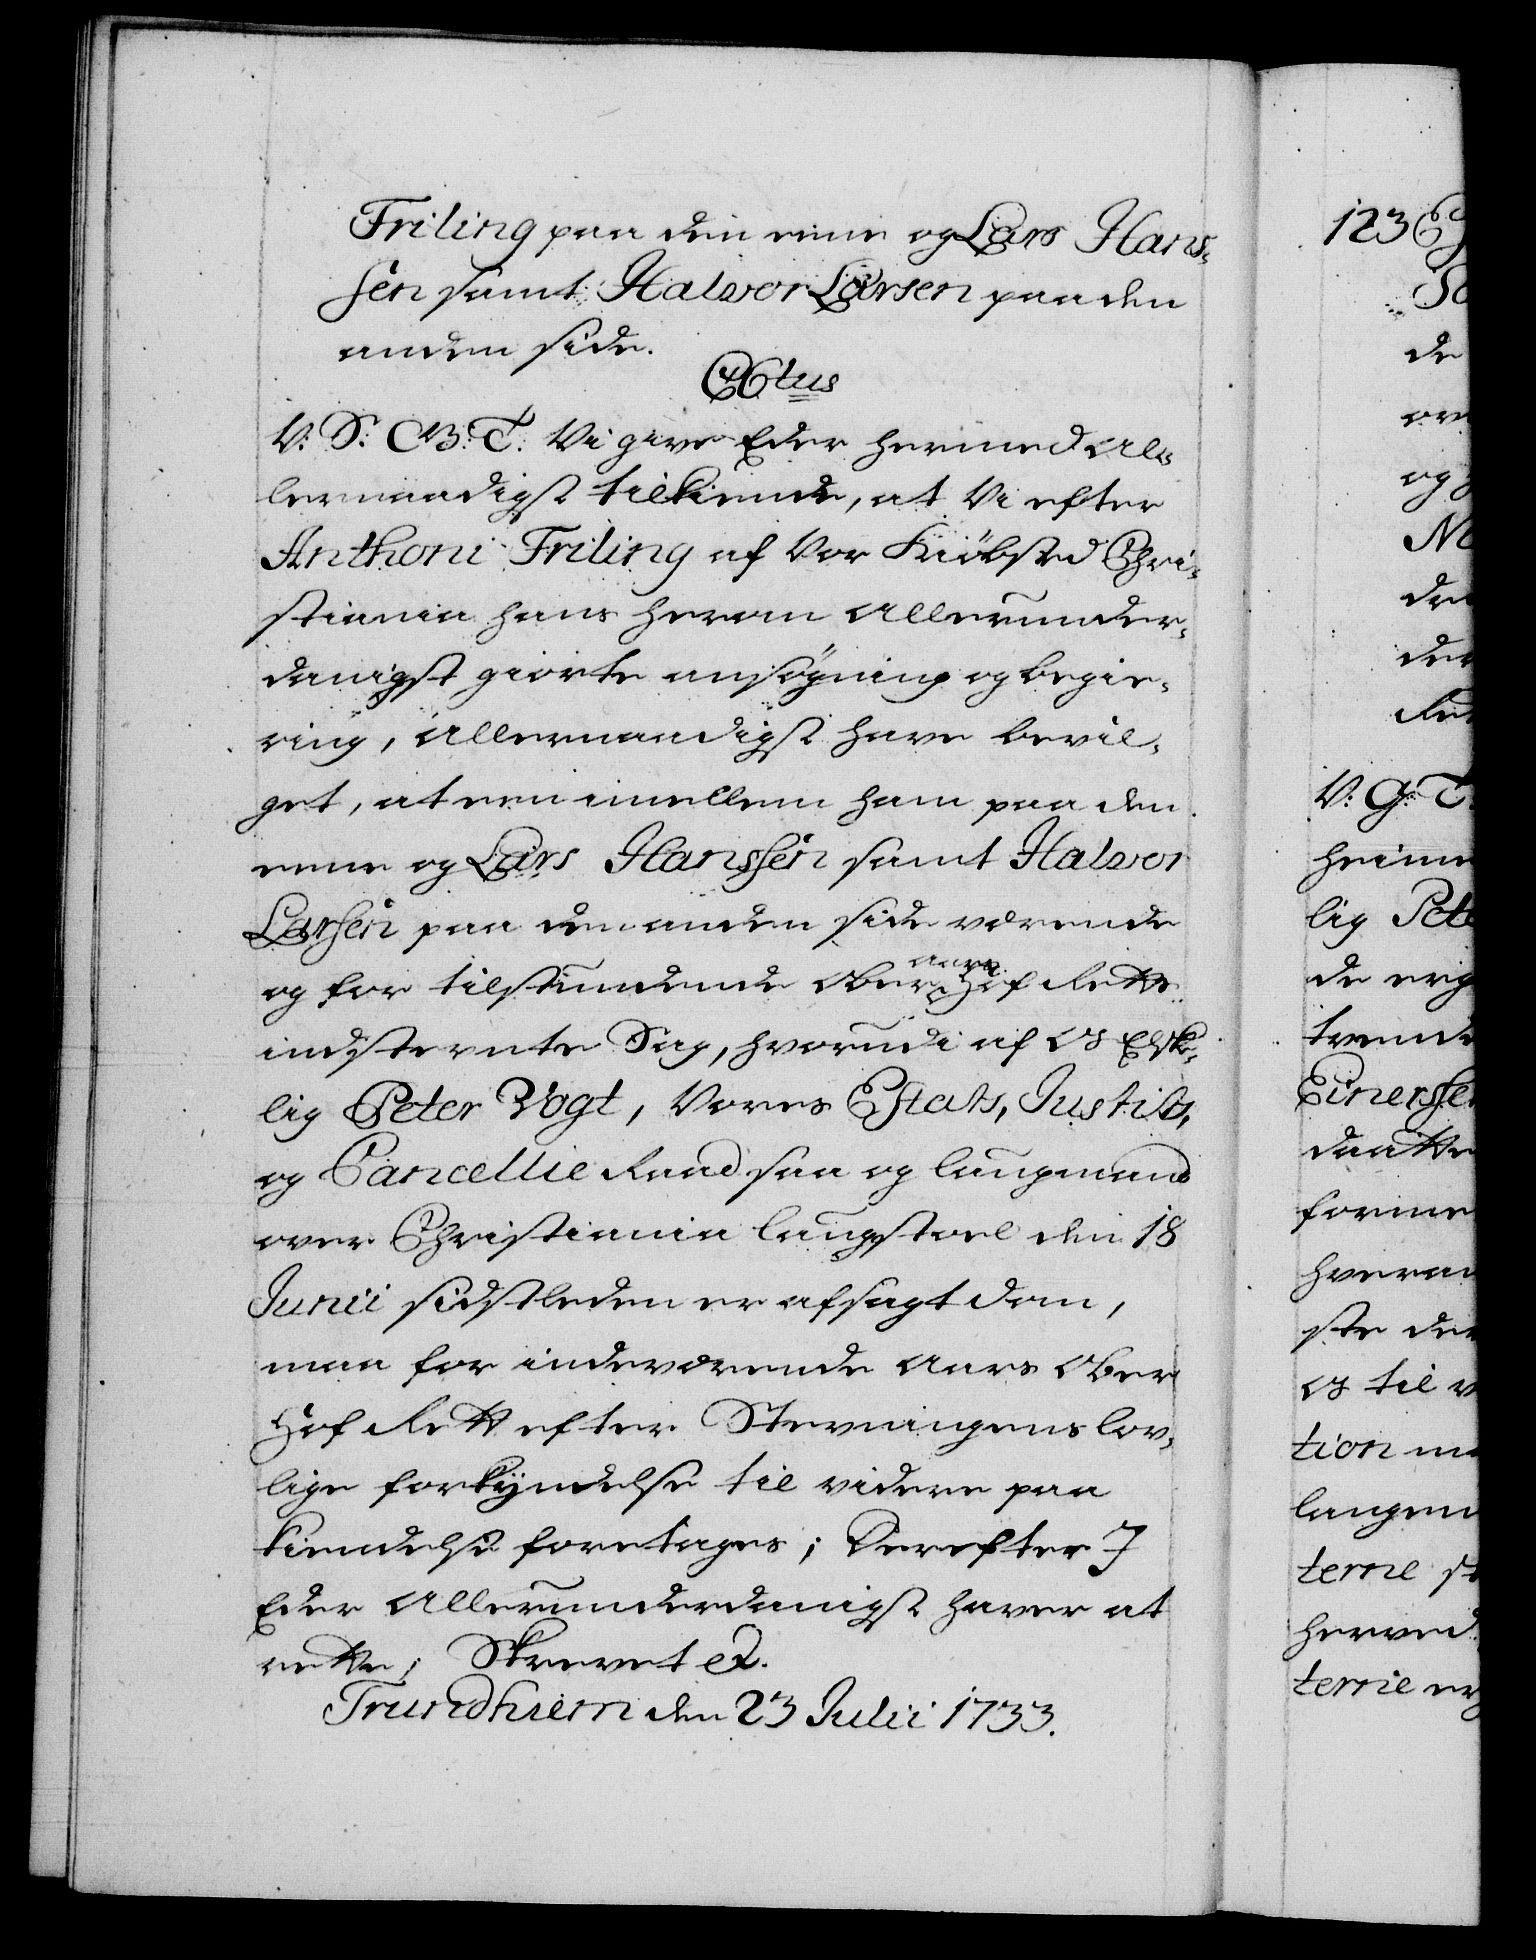 Friling paa den eene og Lars Hans-
sen samt Halvor Larsen paa den
anden side.
V: S: G: T: Vi give Eder hermed Al-
lernaadigst tilkiende, at Vi efter
Anthoni Friling af Vor Kiöbsted Chri-
stiania hans herom Allerunder-
danigst giorte ansøgning og begie-
ring, Allernaadigst have bevil-
get, at een imellem ham paa den
eene og Lars Hanssen samt Halvor
Larssen paa den anden side værende
og for tilstundende Aars Ober Hof Rette
indstevnte Sag, hvorudi af Os Elske-
lig Peter Vogt, Vores Etats, Justits,
og Cancellie Raad saa og laugmand
over Christiania laugstoel den 18
Junii sidstleden er afsagt dom,
maa for indeværende Aars Ober
Hof Rett efter Stevningens lov-
lige forkyndelse til videre paa
kiendelse foretages; Derefter I
Eder Allerunderdanigst haver at
rette; Skrevet &.
Trundhiem den 23 Julii 1733.
123
de
og
V: G: T:
heime
lig Pete
de erg
trende
Einersse
daatte
forme
hveran
ste der
Os til v
tion ma
langen
terne st
herved
terne erg